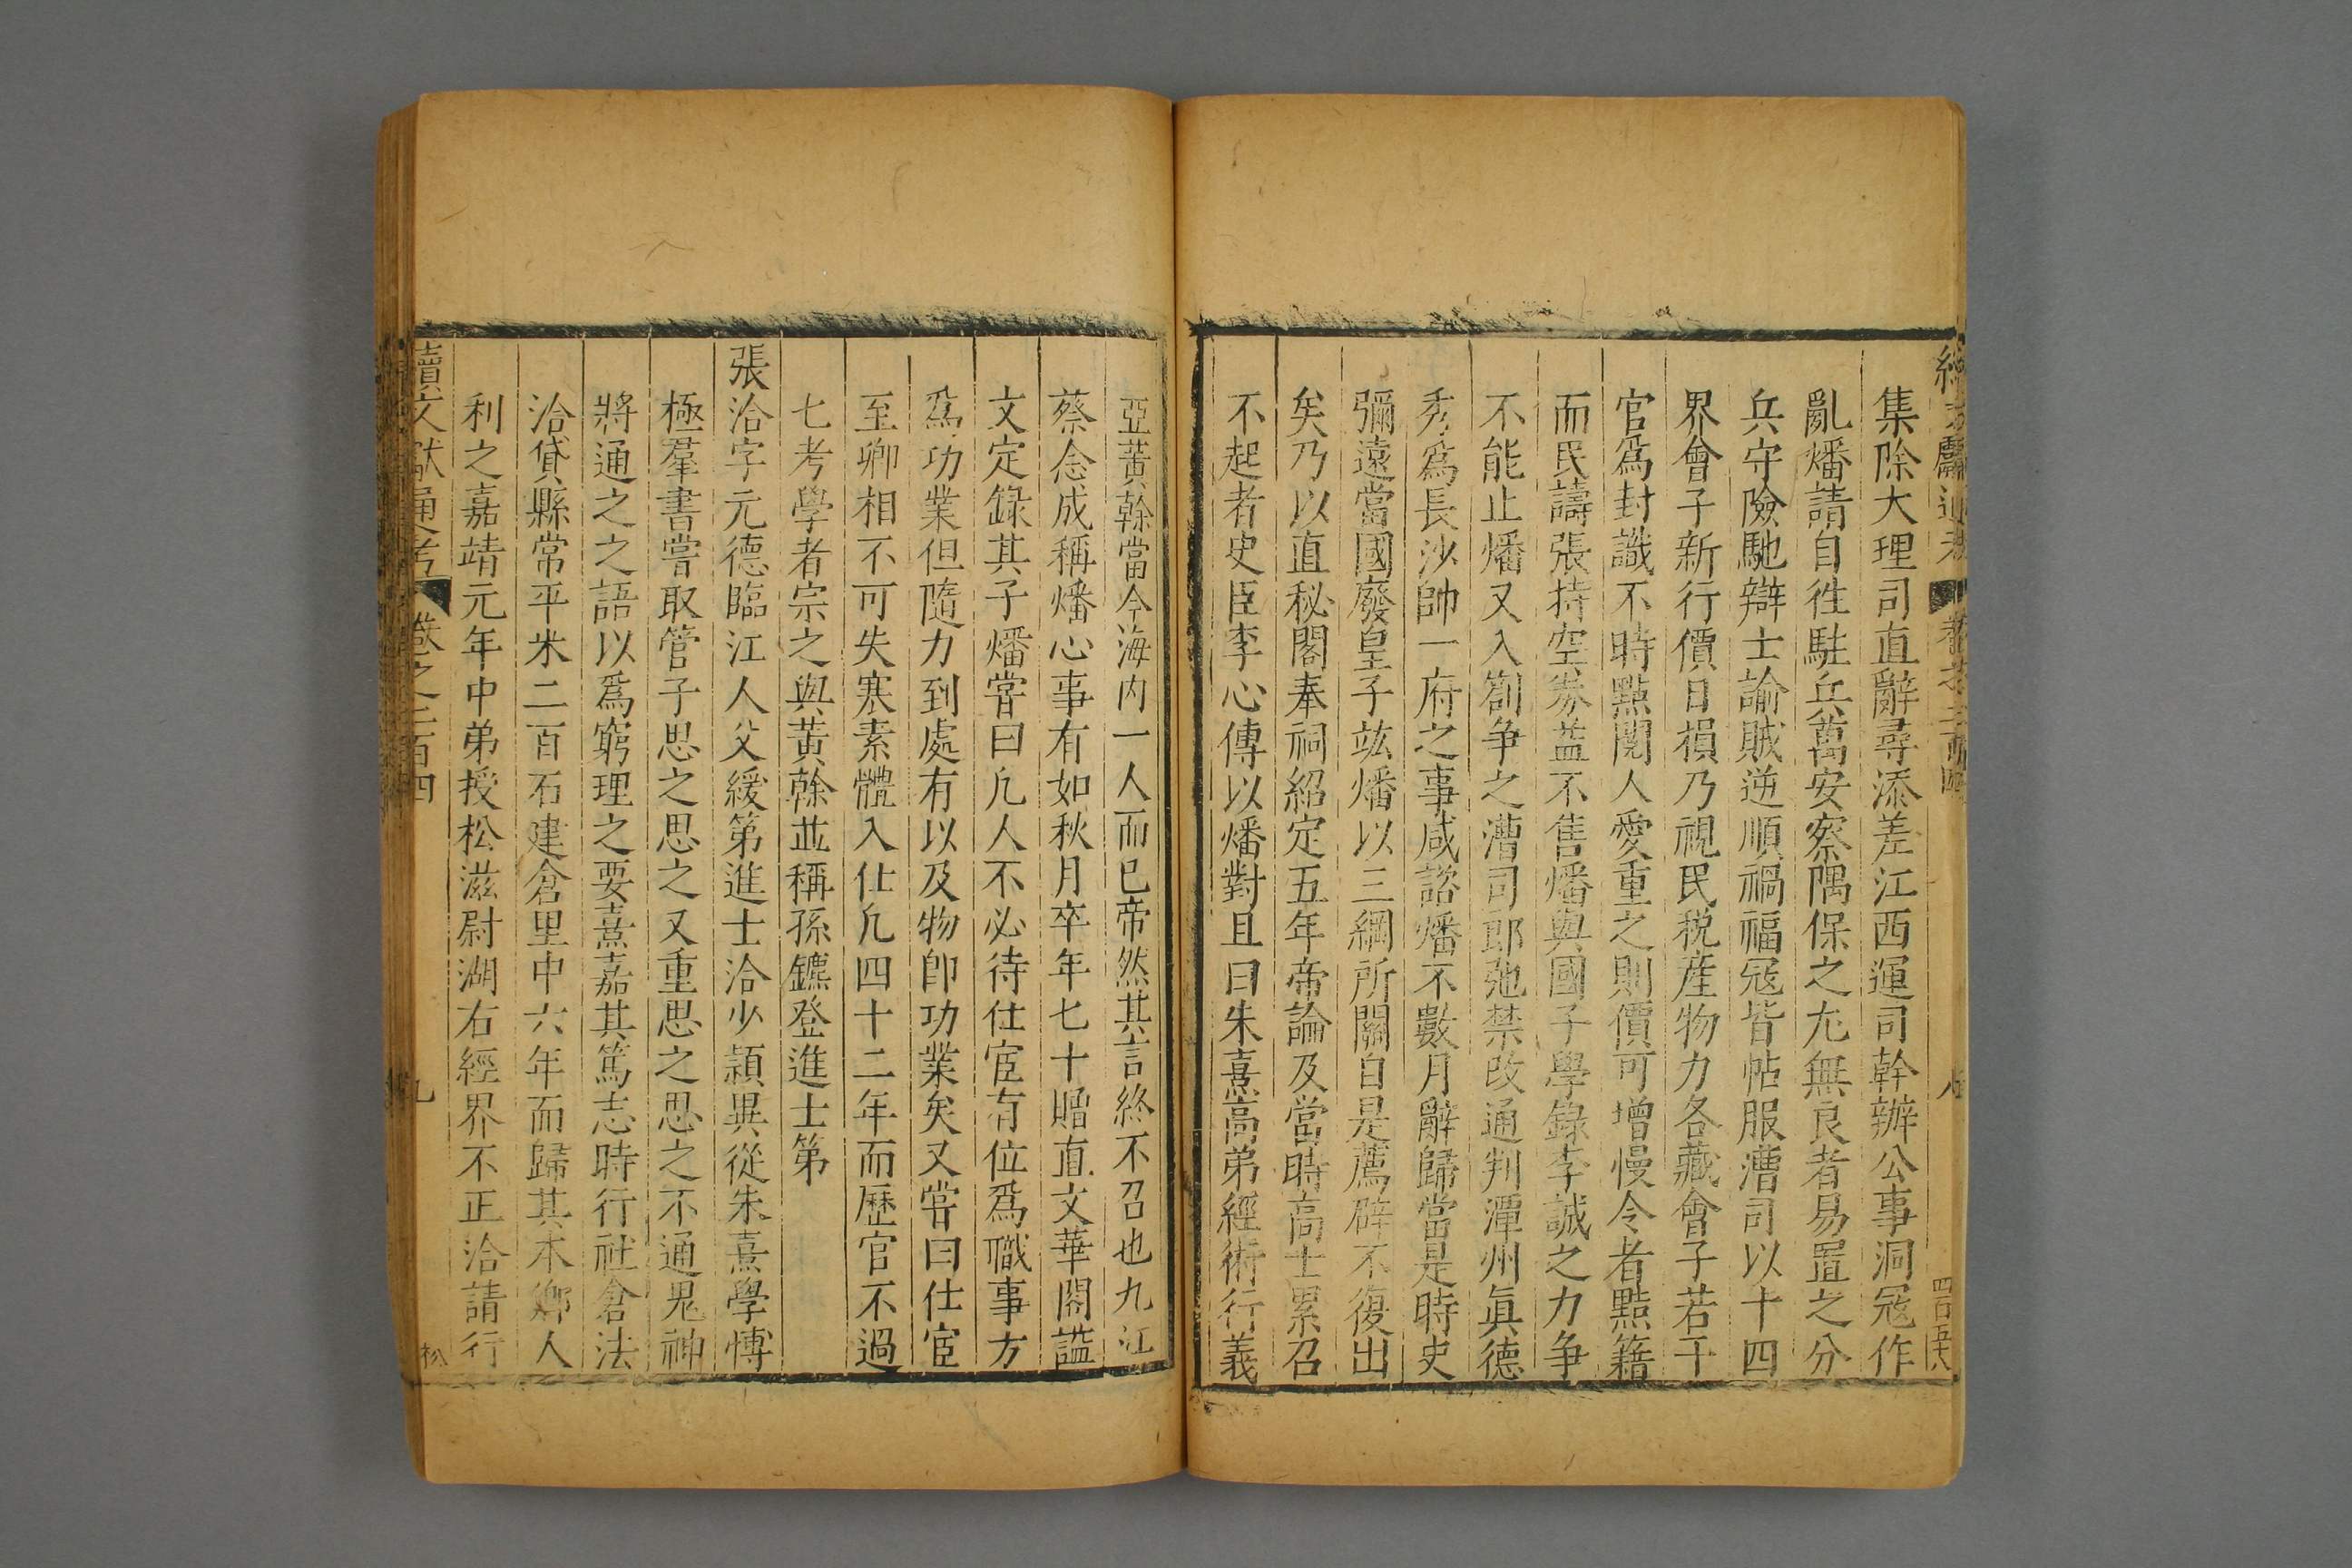 集除大理司直辭尋添差江西運司幹辦公事洞冦作
亂燔請自徃駐兵萬安察隅保之尤無良者易置之分
兵守險馳辯士諭賊逆順禍福冦皆帖服漕司以十四
界會子新行價日損乃視民税産物力各藏會子若干
官爲封識不時點閱人愛重之則價可增慢令者黥籍
而民譸張持空劵益不售燔與國子學錄李誠之力争
不能止燔又入劄争之漕司郎弛禁改通判潭州眞德
秀爲長沙帥一府之事咸諮燔不數月辭歸當是時史
彌遠當國廢皇子竑燔以三綱所關自是薦辟不復出
矣乃以直秘閣奉祠紹定五年帝論及當時高士累召
不起者史臣李心傳以燔對且曰朱熹高弟經術行義
亞黃榦當今海内一人而已帝然其言終不召也九江
蔡念成稱燔心事有如秋月卒年七十贈直文華閣謚
文定錄其子燔嘗曰凢人不必待仕宦有位爲職事方
爲功業但隨力到處有以及物卽功業矣又嘗曰仕宦
至卿相不可失寒素體入仕凢四十二年而歷官不過
七考學者宗之與黃榦並稱孫鑣登進士第
張洽字元德臨江人父緩第進士洽少頴異從朱熹學慱
極羣書嘗取管子思之思之又重思之思之不通鬼神
將通之之語以爲窮理之要熹嘉其篤志時行社倉法
洽貸縣常平米二百石建倉里中六年而歸其本鄉人
利之嘉靖元年中弟授松滋尉湖右經界不正洽請行
續文獻通考 卷之二百四
九
松